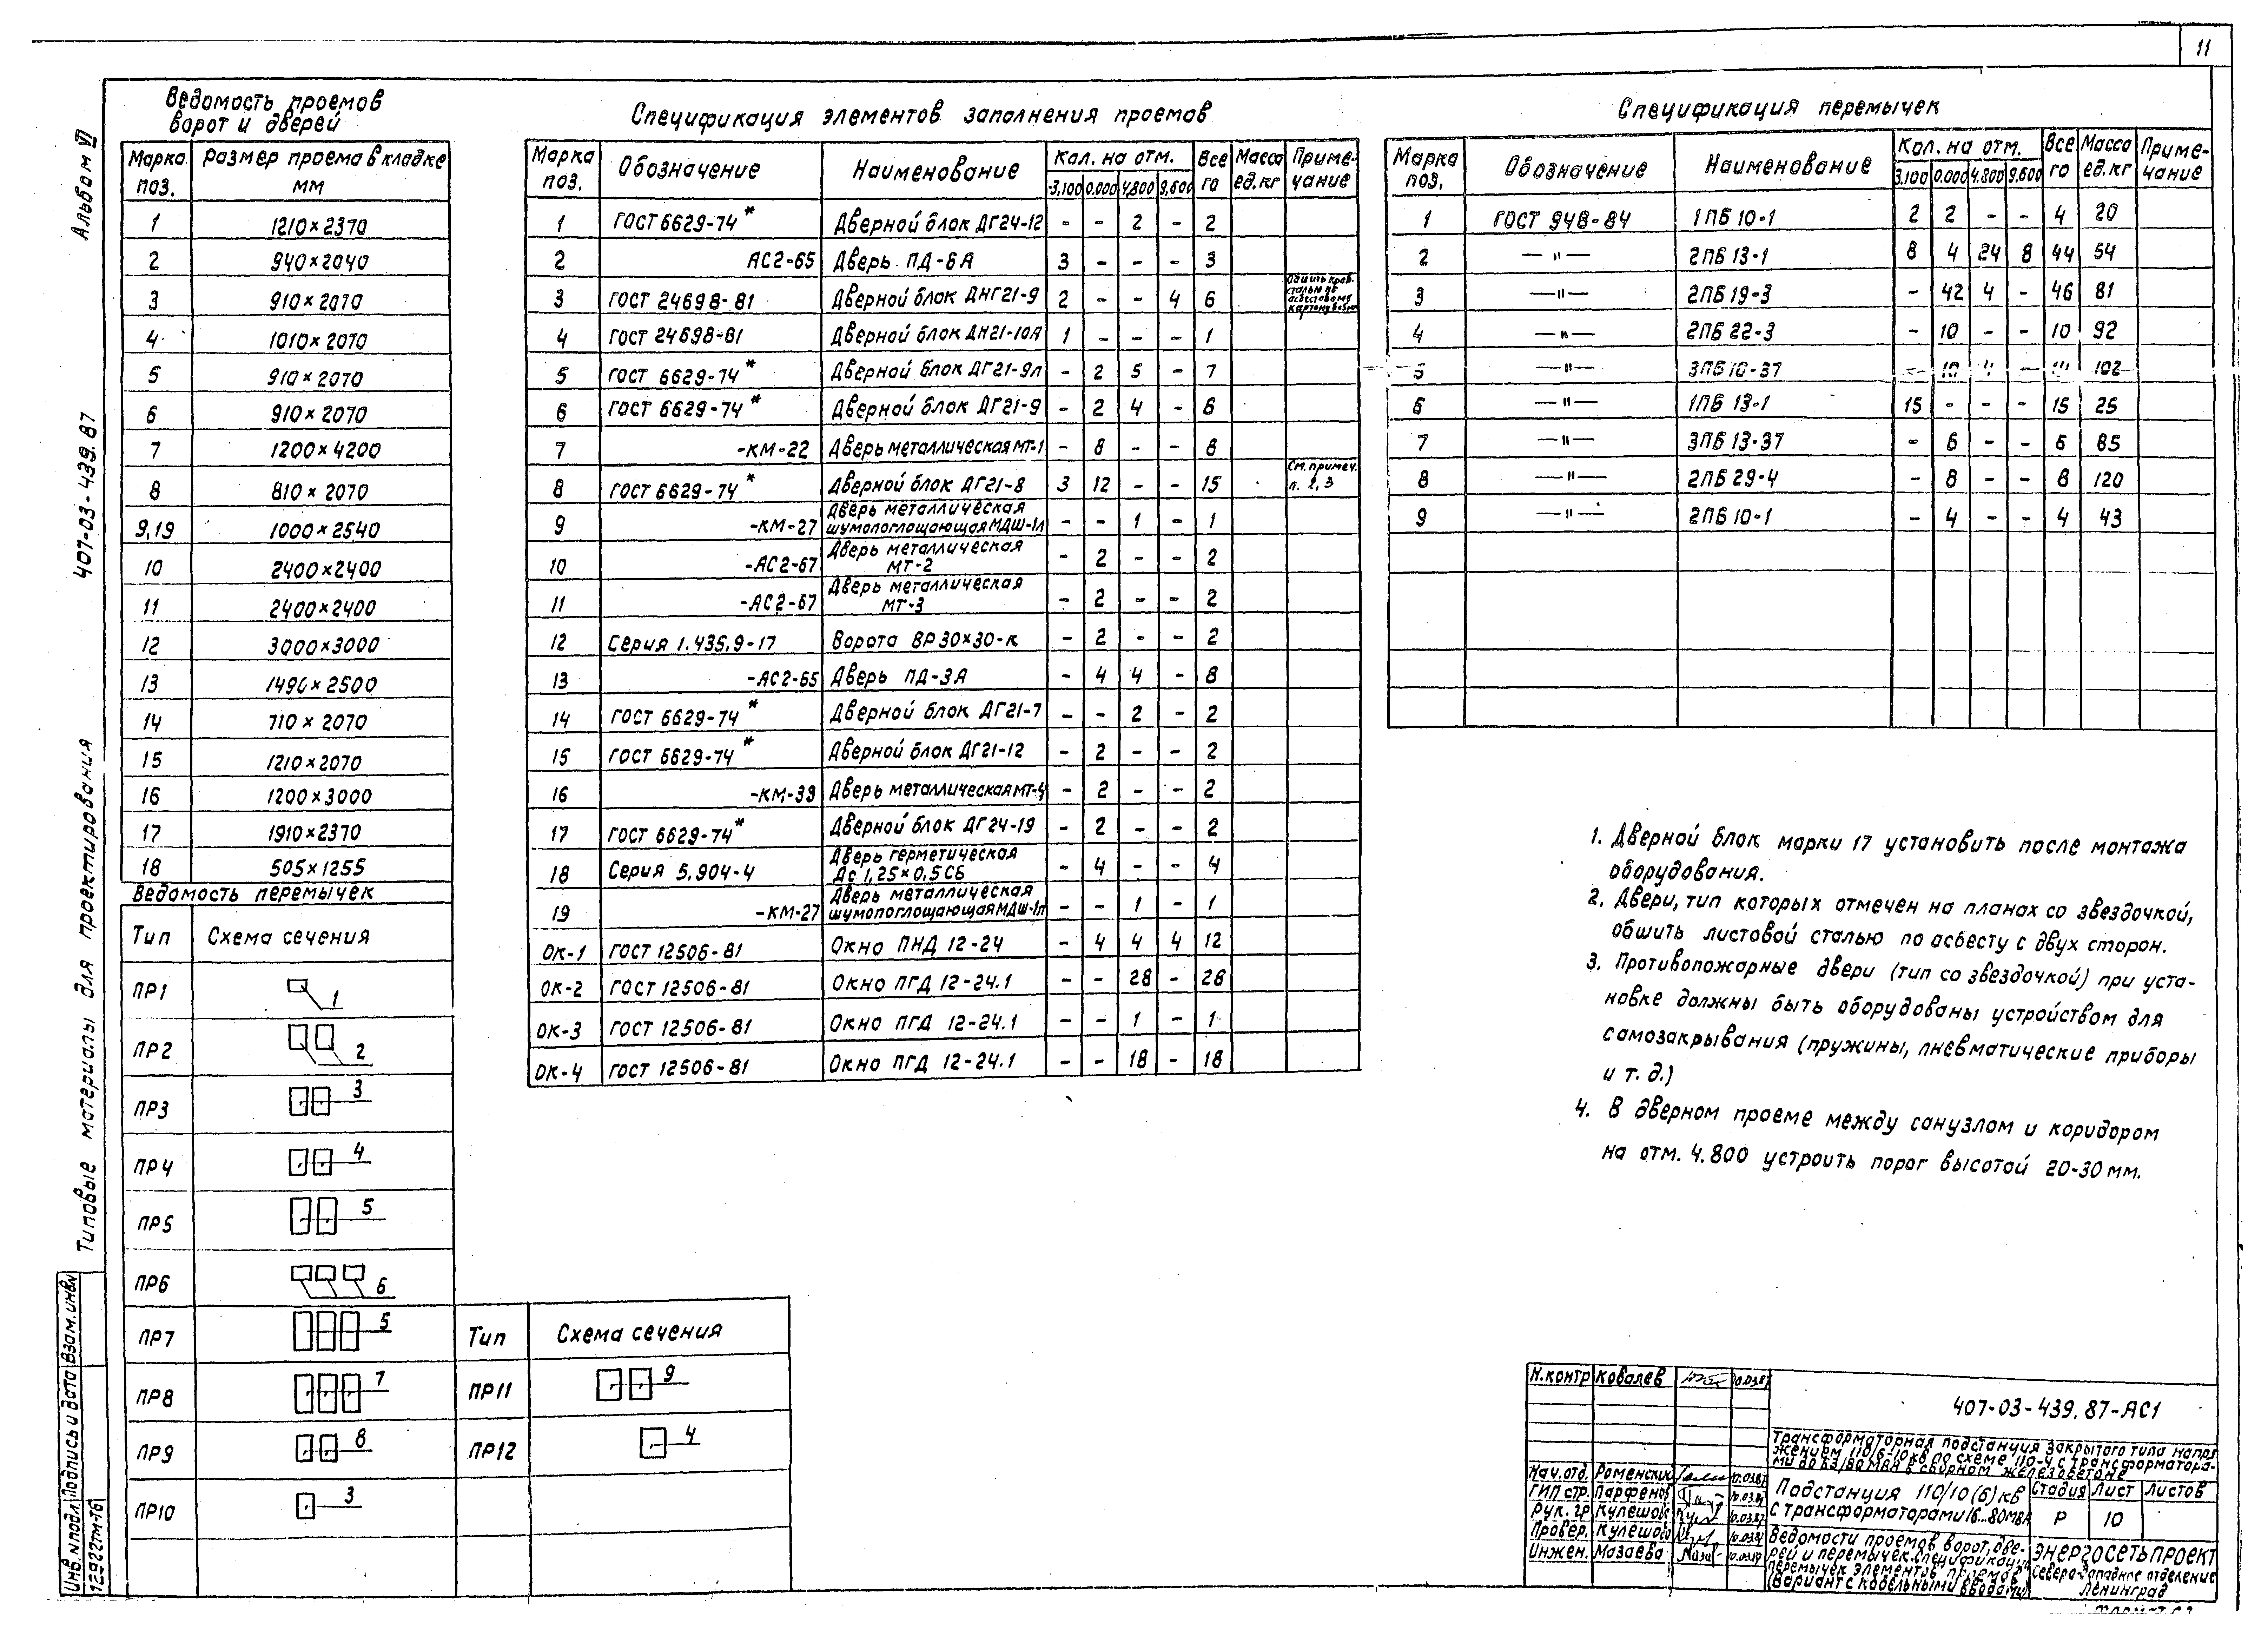 11
Альбом VI
407-03-439.87
Типовые материалы для проектирования
Взам.инв.№
Подпись и дата
Инв.№подл.
12922тм-т6
Ведомость проемов
ворот и дверей
Марка поз. | Размер проема в кладке мм
1 | 1210×2370
2 | 940×2040
3 | 910×2070
4 | 1010×2070
5 | 910×2070
6 | 910×2070
7 | 1200×4200
8 | 810×2070
9,19 | 1000×2540
10 | 2400×2400
11 | 2400×2400
12 | 3000×3000
13 | 1490×2500
14 | 710×2070
15 | 1210×2070
16 | 1200×3000
17 | 1910×2370
18 | 505×1255
Ведомость перемычек
Тип | Схема сечения
ПР1 | 1
ПР2 | 2
ПР3 | 3
ПР4 | 4
ПР5 | 5
ПР6 | 6
ПР7 | 5
ПР8 | 7
ПР9 | 8
ПР10 | 3
Тип | Схема сечения
ПР11 | 9
ПР12 | 4
Спецификация элементов заполнения проемов
Марка поз. | Обозначение | Наименование | Кол. на отм. | Всего | Масса ед.кг | Примечание
-3,100 | 0.000 | 4,800 | 9,600
1 | ГОСТ 6629-74* | Дверной блок ДГ24-12 | - | - | 2 | - | 2
2 | АС2-65 | Дверь ПД-6А | 3 | - | - | - | 3
3 | ГОСТ 24698-81 | Дверной блок ДНГ21-9 | 2 | - | - | 4 | 6 | Обшить кров. сталью по асбестовому картону
4 | ГОСТ 24698-81 | Дверной блок ДН21-10А | 1 | - | - | - | 1
5 | ГОСТ 6629-74* | Дверной блок ДГ21-9л | - | 2 | 5 | - | 7
6 | ГОСТ 6629-74* | Дверной блок ДГ21-9 | - | 2 | 4 | - | 6
7 | -КМ-22 | Дверь металлическая МТ-1 | - | 8 | - | - | 8
8 | ГОСТ 6629-74* | Дверной блок ДГ21-8 | 3 | 12 | - | - | 15 | См. примеч. п. 2,3
9 | -КМ-27 | Дверь металлическая шумопоглощающая МДШ-1л | - | - | 1 | - | 1
10 | -АС2-67 | Дверь металлическая МТ-2 | - | 2 | - | - | 2
11 | -АС2-67 | Дверь металлическая МТ-3 | - | 2 | - | - | 2
12 | Серия 1.435.9-17 | Ворота ВР30×30-К | - | 2 | - | - | 2
13 | -АС2-65 | Дверь ПД-3А | - | 4 | 4 | - | 8
14 | ГОСТ 6629-74* | Дверной блок ДГ21-7 | - | - | 2 | - | 2
15 | ГОСТ 6629-74* | Дверной блок ДГ21-12 | - | 2 | - | - | 2
16 | -КМ-33 | Дверь металлическая МТ-4 | - | 2 | - | - | 2
17 | ГОСТ 6629-74* | Дверной блок ДГ24-19 | - | 2 | - | - | 2
18 | Серия 5.904-4 | Дверь герметическая Дс 1,25×0,5СБ | - | 4 | - | - | 4
19 | -КМ-27 | Дверь металлическая шумопоглощающая МДШ-1п | - | - | 1 | - | 1
ОК-1 | ГОСТ 12506-81 | Окно ПНД 12-24 | - | 4 | 4 | 4 | 12
ОК-2 | ГОСТ 12506-81 | Окно ПГД 12-24.1 | - | - | 28 | - | 28
ОК-3 | ГОСТ 12506-81 | Окно ПГД 12-24.1 | - | - | 1 | - | 1
ОК-4 | ГОСТ 12506-81 | Окно ПГД 12-24.1 | - | - | 18 | - | 18
Спецификация перемычек
Марка поз. | Обозначение | Наименование | Кол. на отм. | Всего | Масса ед.кг | Примечание
3.100 | 0.000 | 4.800 | 9.600
1 | ГОСТ 948-84 | 1ПБ10-1 | 2 | 2 | - | - | 4 | 20
2 | —"— | 2ПБ13-1 | 8 | 4 | 24 | 8 | 44 | 54
3 | —"— | 2ПБ19-3 | - | 42 | 4 | - | 46 | 81
4 | —"— | 2ПБ22-3 | - | 10 | - | - | 10 | 92
5 | —"— | 3ПБ18-37 | - | 10 | 4 | - | 14 | 102
6 | —"— | 1ПБ13-1 | 15 | - | - | - | 15 | 25
7 | —"— | 3ПБ13-37 | - | 6 | - | - | 6 | 85
8 | —"— | 2ПБ29-4 | - | 8 | - | - | 8 | 120
9 | —"— | 2ПБ10-1 | - | 4 | - | - | 4 | 43
1. Дверной блок марки 17 установить после монтажа
оборудования.
2. Двери, тип которых отмечен на планах со звездочкой,
обшить листовой сталью по асбесту с двух сторон.
3. Противопожарные двери (тип со звездочкой) при уста-
новке должны быть оборудованы устройством для
самозакрывания (пружины, пневматические приборы
и т. д.)
4. В дверном проеме между санузлом и коридором
на отм. 4.800 устроить порог высотой 20-30мм.
Н.контр | Ковалев | 10.03.87
407-03-439.87-АС1
Трансформаторная подстанция закрытого типа напря-
жением 110/6-10кв по схеме 110-4 с трансформатора-
ми до 63/80 МВА в сборном железобетоне
Нач.отд. | Роменский | 10.03.87
ГИП стр. | Парфенов | 10.03.87
Рук. гр | Кулешов | 10.03.87
Провер. | Кулешов | 10.03.87
Инжен. | Мазаева | 10.03.87
Подстанция 110/10(6)кВ
с трансформаторами 16...80МВА
Стадия | Лист | Листов
Р | 10
Ведомости проемов ворот, две-
рей и перемычек. Спецификации
перемычек элементов проемов
(Вариант с кабельными вводами)
ЭНЕРГОСЕТЬПРОЕКТ
Северо-Западное отделение
Ленинград